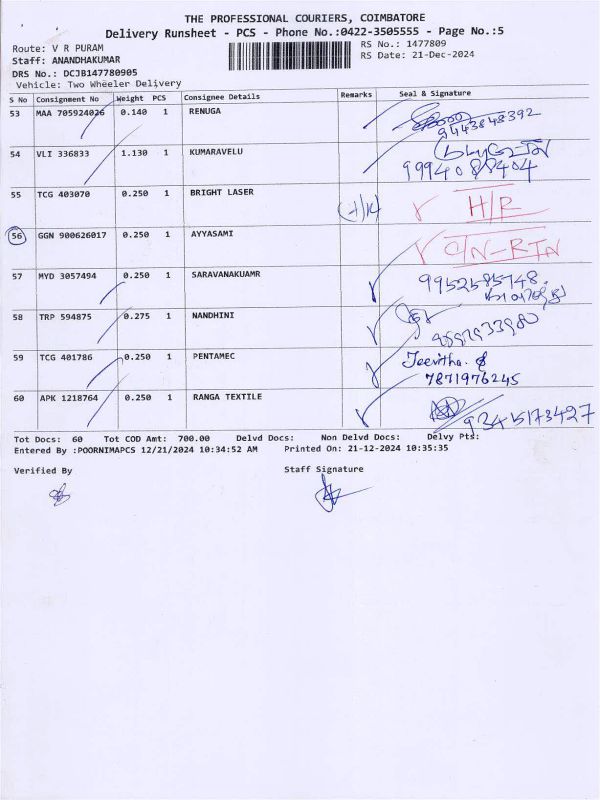 THE PROFESSIONAL COURIERS, COIMBATORE
Delivery Runsheet - PCS - Phone No.:0422-3505555 - Page No.:5
Route: V R PURAM
RS No.: 1477809
Staff: ANANDHAKUMAR
RS Date: 21-Dec-2024
DRS No.: DCJB147780905
Vehicle: Two Wheeler Delivery
S No Consignment No Weight PCS Consignee Details Remarks Seal & Signature
53 MAA 705924026 0.140 1 RENUGA
9443848392
54 VLI 336833 1.130 1 KUMARAVELU
9994088404
55 TCG 403070 0.250 1 BRIGHT LASER H/R
56 GGN 900626017 0.250 1 AYYASAMI CN-RTN
57 MYD 3057494 0.250 1 SARAVANAKUAMR 9952585748
58 TRP 594875 0.275 1 NANDHINI
59 TCG 401786 0.250 1 PENTAMEC Jeevitha
7871976245
60 APK 1218764 0.250 1 RANGA TEXTILE
9345173427
Tot Docs: 60 Tot COD Amt: 700.00 Delvd Docs: Non Delvd Docs: Delvy Pts:
Entered By :POORNIMAPCS 12/21/2024 10:34:52 AM Printed On: 21-12-2024 10:35:35
Verified By Staff Signature